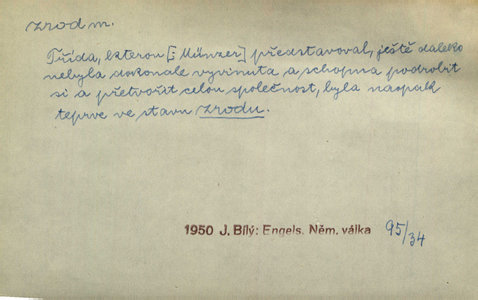 zrod m.
Třída, kterou [: Münzer] představoval, ještě daleko
nebyla dokonale vyvinuta a schopna podrobit
si a přetvořit celou společnost, byla naopak
teprve ve stavu zrodu.
1950 J. Bílý: Engels. Něm. válka 95/34